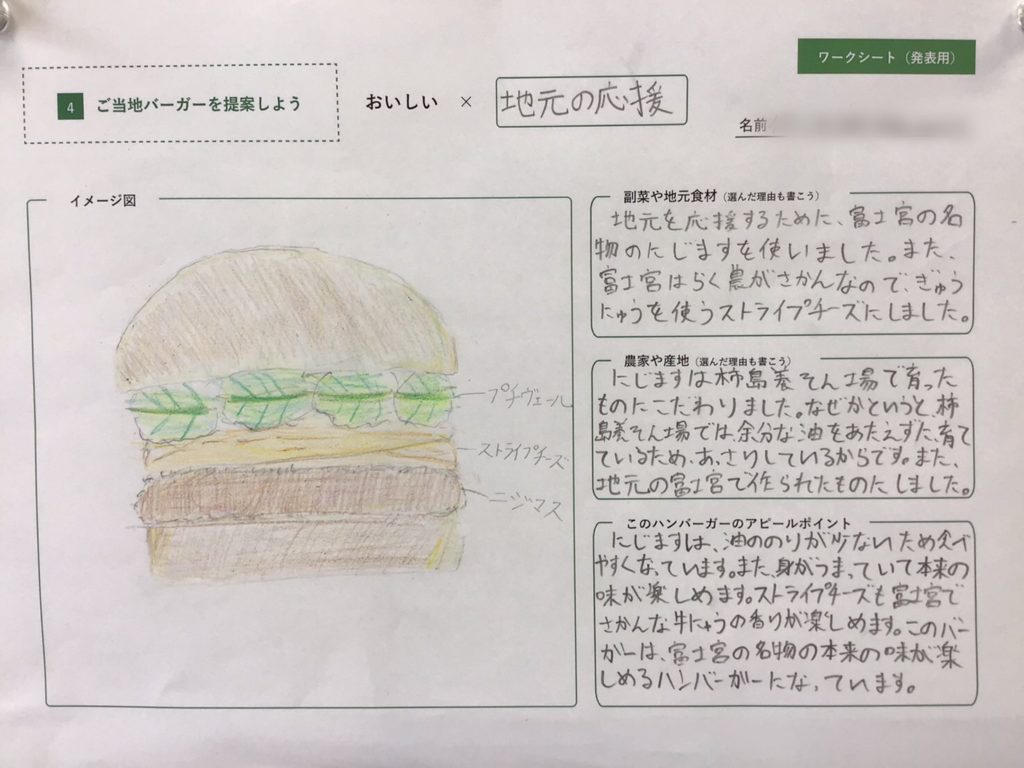 ワークシート（発表用）
4 ご当地バーガーを提案しよう
おいしい × 地元の応援
名前
イメージ図
プチヴェール
ストライプチーズ
ニジマス
副菜や地元食材（選んだ理由も書こう）
地元を応援するために、富士宮の名
物のにじますを使いました。また、
富士宮はらく農がさかんなので、ぎゅう
にゅうを使うストライプチーズにしました。
農家や産地（選んだ理由も書こう）
にじますは柿島養そん場で育った
ものにこだわりました。なぜかというと、柿
島養そん場では、余分な油をあたえずに、育て
ているため、あっさりしているからです。また、
地元の富士宮で作られたものにしました。
このハンバーガーのアピールポイント
にじますは、油ののりが少ないため食べ
やすくなっています。また、身がうまっていて本来の
味が楽しめます。ストライプチーズも富士宮で
さかんな牛にゅうの香りが楽しめます。このバー
ガーは、富士宮の名物の本来の味が楽
しめるハンバーガーになっています。